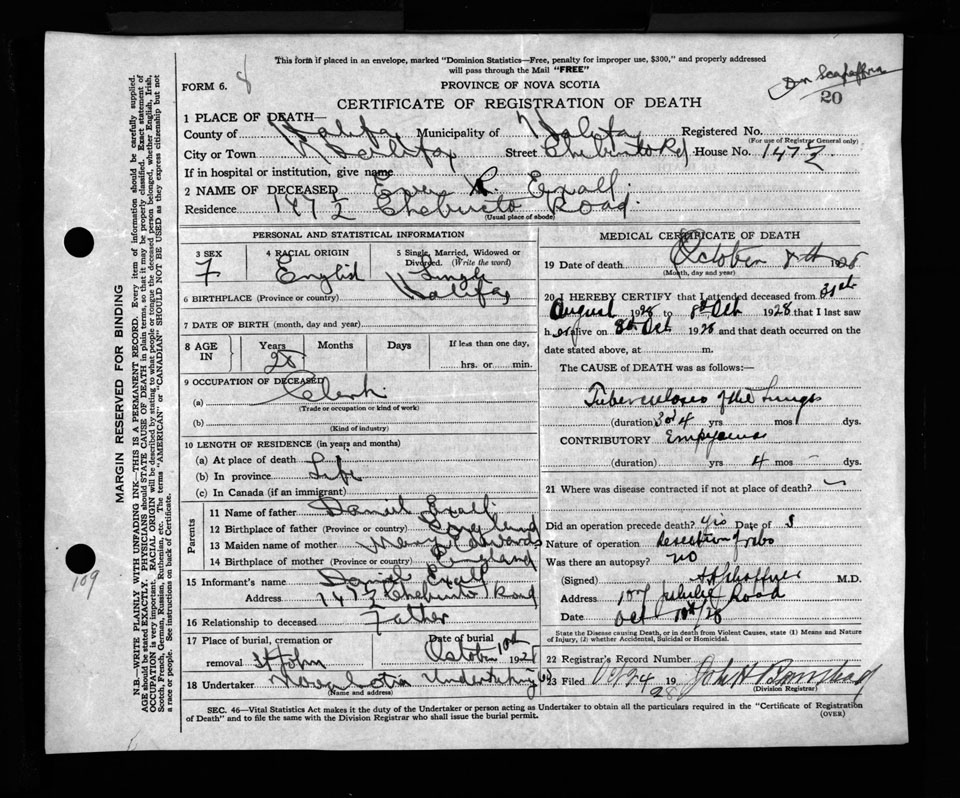 This form if placed in an envelope, marked "Dominion Statistics—Free, penalty for improper use, $300," and properly addressed
will pass through the Mail "FREE"
FORM 6. 8
PROVINCE OF NOVA SCOTIA
20
CERTIFICATE OF REGISTRATION OF DEATH
1 PLACE OF DEATH—
County of Halifax Municipality of Halifax Registered No.
(For use of Registrar General only)
City or Town Halifax Street Chebucto Rd House No. 147½
If in hospital or institution, give name
2 NAME OF DECEASED Exall
Residence 147½ Chebucto Road.
(Usual place of abode)
PERSONAL AND STATISTICAL INFORMATION
3 SEX 4 RACIAL ORIGIN 5 Single, Married, Widowed or Divorced. (Write the word)
F English Single
6 BIRTHPLACE (Province or country) Halifax
7 DATE OF BIRTH (month, day and year)
8 AGE IN Years Months Days If less than one day,
28 hrs. or min.
9 OCCUPATION OF DECEASED
(a) Clerk
(Trade or occupation or kind of work)
(b)
(Kind of industry)
10 LENGTH OF RESIDENCE (in years and months)
(a) At place of death
(b) In province Life
(c) In Canada (if an immigrant)
Parents
11 Name of father Daniel Exall
12 Birthplace of father (Province or country) England
13 Maiden name of mother Mary Edwards
14 Birthplace of mother (Province or country) England
15 Informant's name Daniel Exall
Address 147½ Chebucto Road
16 Relationship to deceased Father
17 Place of burial, cremation or Date of burial
removal St John October 10th 1928
18 Undertaker Nova Scotia Undertaking Co
(Name and address)
MEDICAL CERTIFICATE OF DEATH
19 Date of death October 8th 1928
(Month, day and year)
20 I HEREBY CERTIFY that I attended deceased from 31st
August 1928 to 8th Oct 1928 that I last saw
her alive on 8th Oct 1928 and that death occurred on the
date stated above, at m.
The CAUSE OF DEATH was as follows:—
Tuberculosis of the Lungs
(duration) 3 or 4 yrs mos dys.
CONTRIBUTORY Empyema
(duration) yrs 4 mos – dys.
21 Where was disease contracted if not at place of death? —
Did an operation precede death? yis Date of
Nature of operation Resection of ribs
Was there an autopsy? NO
(Signed) M.D.
Address Jubilee Road
Date Oct 10th/28
State the Disease causing Death, or in death from Violent Causes, state (1) Means and Nature
of Injury, (2) whether Accidental, Suicidal or Homicidal.
22 Registrar's Record Number
23 Filed 19 28 John H
(Division Registrar)
SEC. 46—Vital Statistics Act makes it the duty of the Undertaker or person acting as Undertaker to obtain all the particulars required in the "Certificate of Registration
of Death" and to file the same with the Division Registrar who shall issue the burial permit.
(OVER)
MARGIN RESERVED FOR BINDING
N.B.—WRITE PLAINLY WITH UNFADING INK—THIS IS A PERMANENT RECORD. Every item of information should be carefully supplied.
AGE should be stated EXACTLY. PHYSICIANS should STATE CAUSE OF DEATH in plain terms, so that it may be properly classified. Exact statement of
OCCUPATION is very important. RACIAL ORIGIN will be described by stating to what people or tongue the deceased person belonged, whether English, Irish,
Scotch, French, German, Russian, Ruthenian, etc. The terms "AMERICAN" or "CANADIAN" SHOULD NOT BE USED as they express citizenship but not
a race or people. See instructions on back of Certificate.
109